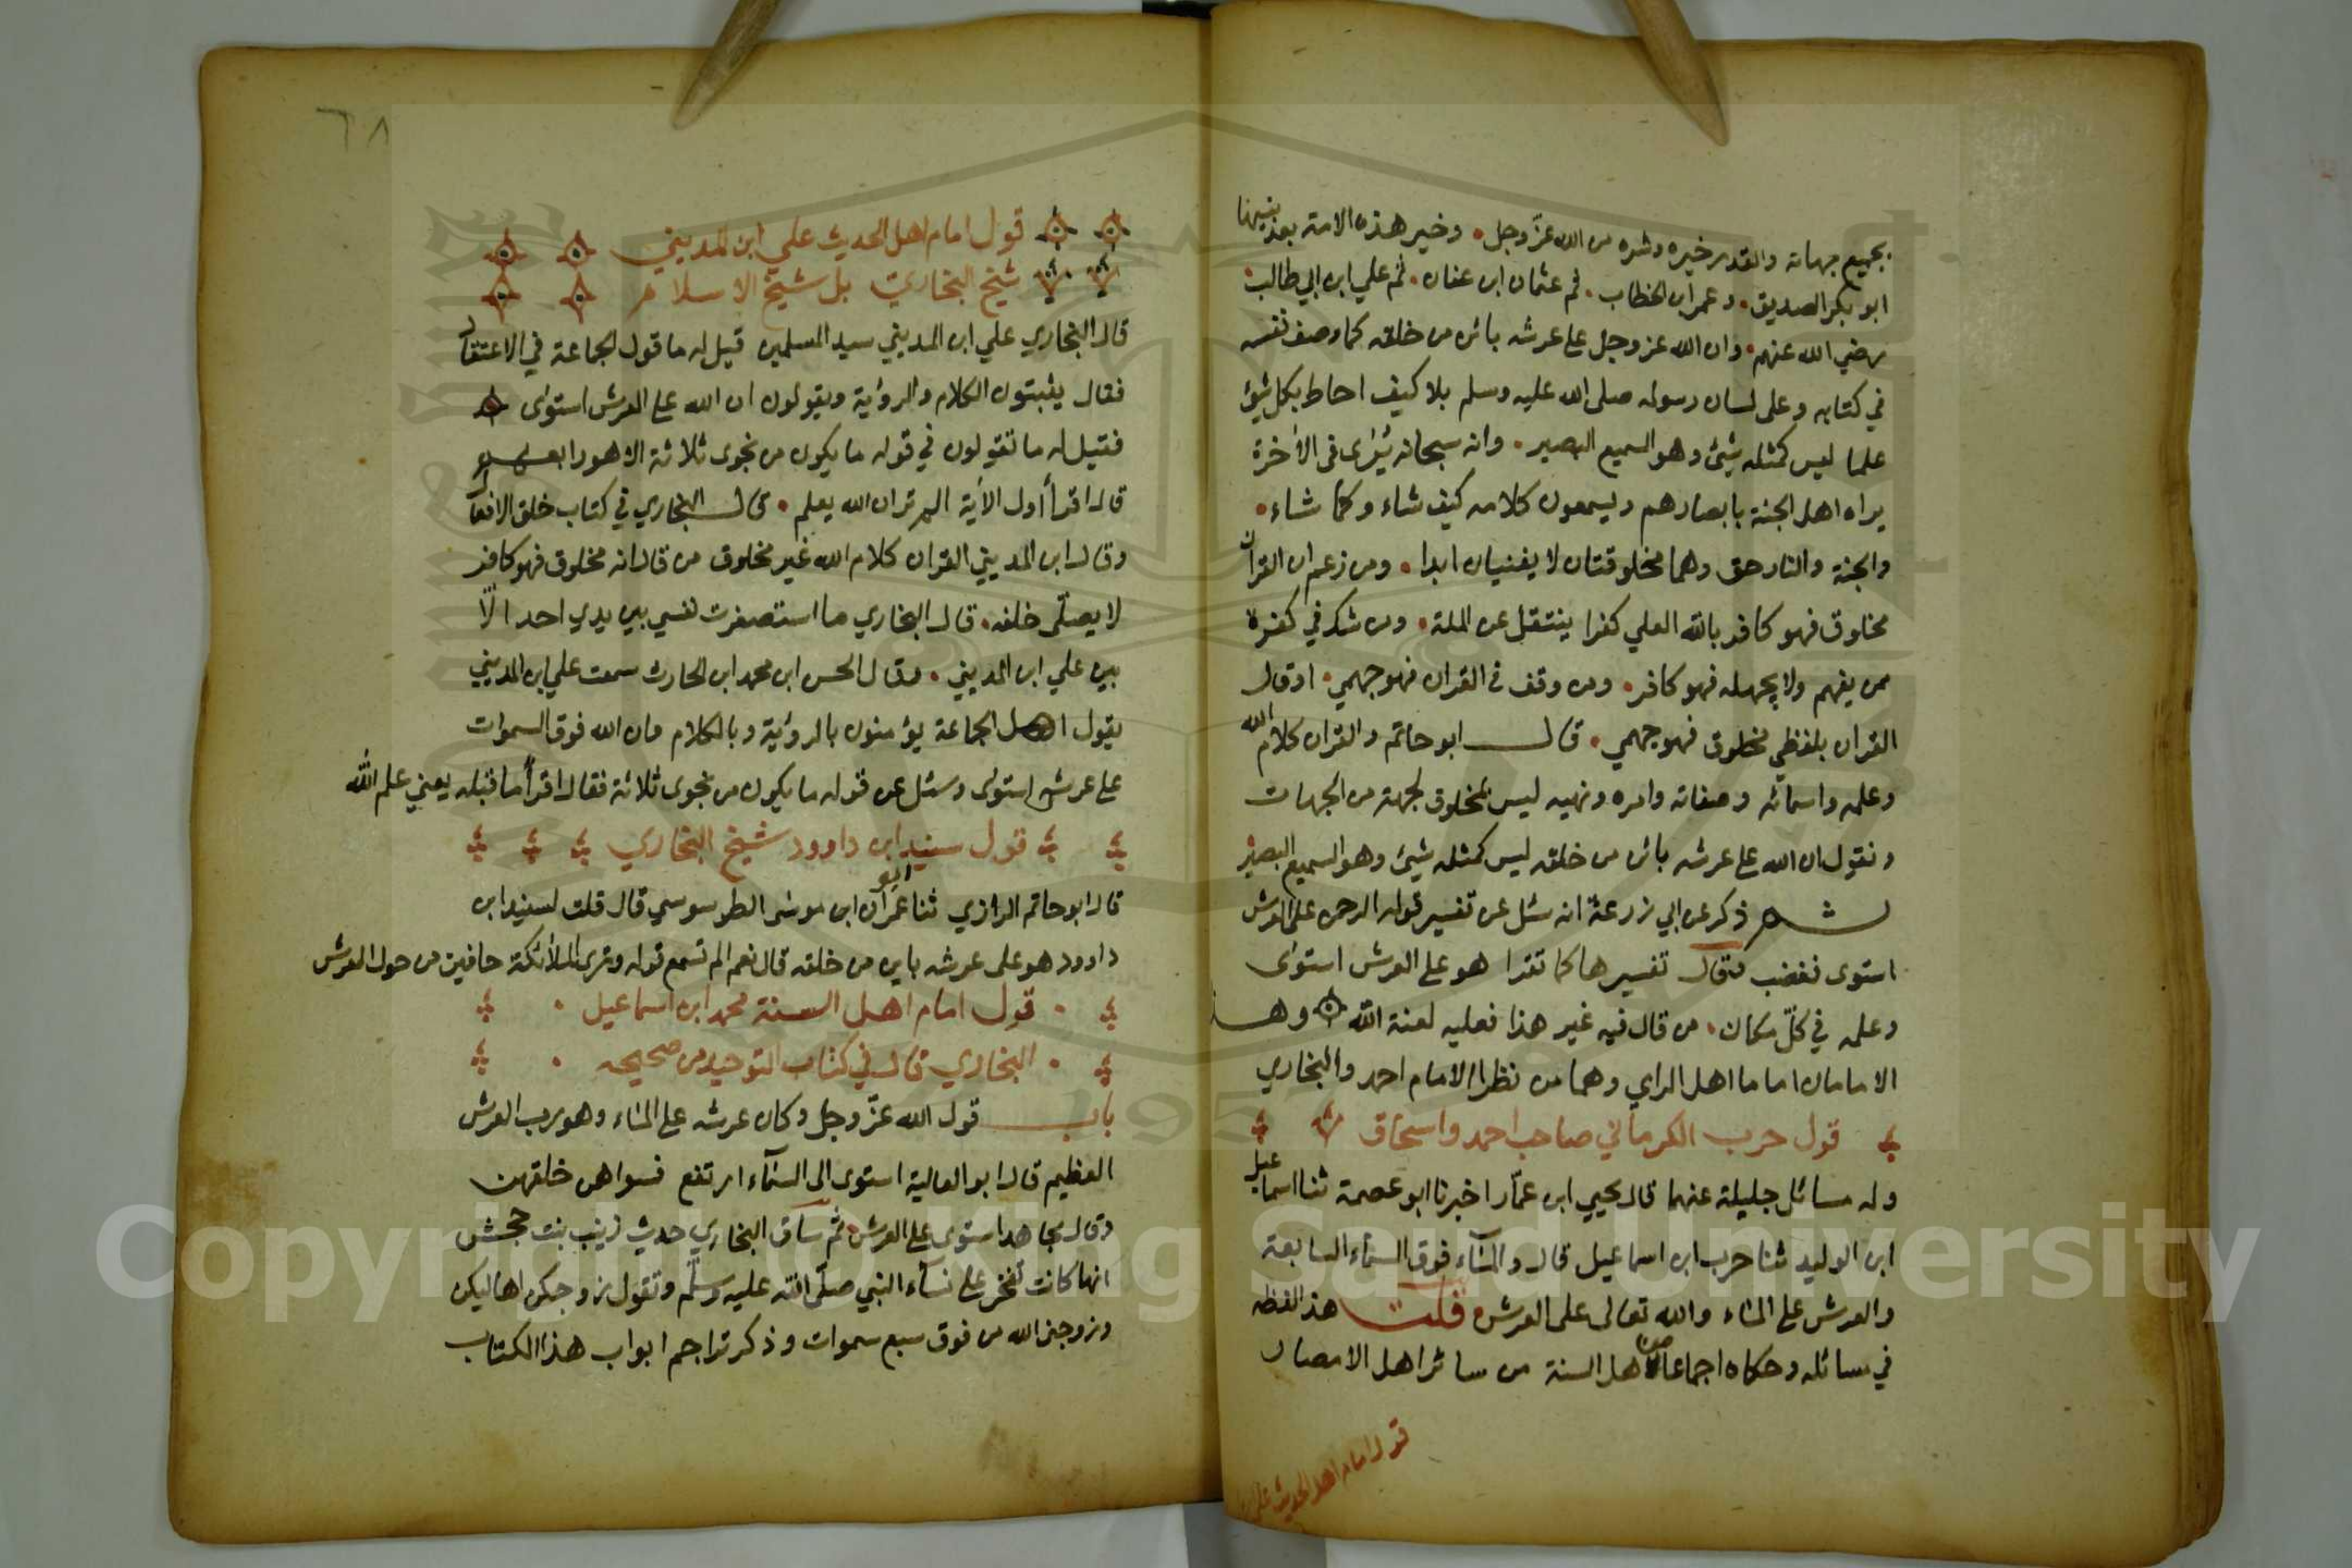 بجميع جهاته والقدر خيره وشره من الله عزّ وجل . وخير هذه الامة بعد نبيها
ابو بكر الصديق . وعمر ابن الخطاب . ثم عثمان ابن عفان . ثم علي ابن ابي طالب
رضي الله عنهم . وان الله عز وجل على عرشه بائن من خلقه كما وصف نفسه
في كتابه وعلى لسان رسوله صلى الله عليه وسلم بلا كيف احاط بكل شيئ
علما ليس كمثله شيئ وهو السميع البصير . وانه سبحانه يُرٰى في الاٰخرة
يراه اهل الجنة بابصارهم ويسمعون كلامه كيف شاء وكما شاء .
والجنة والنار حق وهما مخلوقتان لا يفنيان ابدا . ومن زعم ان القرآن
مخلوق فهو كافر بالله العلي كفرا ينتقل عن الملة . ومن شك في كفره
ممن يفهم ولا يجهله فهو كافر . ومن وقف في القران فهو جهمي . او قال
القران بلفظي مخلوق فهو جهمي . قال ابو حاتم والقران كلام الله
وعلمه واسمائه وصفاته وامره ونهيه ليس بمخلوق بجهة من الجهات
ونقول ان الله على عرشه بائن من خلقه ليس كمثله شيئ وهو السميع البصير
ثم ذكر عن ابي زرعة انه سئل عن تفسير قوله الرحمن على العرش
استوى فغضب وقال تفسيرها كما تقرا هو على العرش استوٰى
وعلمه في كلّ مكان . من قال فيه غير هذا فعليه لعنة الله وهذ
الامامان اماما اهل الراي وهما من نظرا الامام احمد والبخاري
قول حرب الكرماني صاحب احمد واسحاق
وله مسائل جليلة عنهما قال يحيي ابن عمّار اخبرنا ابو عصمة ثنا اسماعيل
ابن الوليد ثنا حرب ابن اسماعيل قال والمآء فوق السماء السابعة
والعرش على الماء والله تعالى على العرش قلت هذا لفظه
في مسائله وحكاه اجماعا من اهل السنة من سائر اهل الامصار
قول امام اهل الحديث علي
٦٨
قول امام اهل الحديث علي ابن المديني
شيخ البخاري بل شيخ الاسلام
قال البخاري علي ابن المديني سيد المسلمين قيل له ما قول الجماعة في الاعتقاد
فقال يثبتون الكلام والرؤية ويقولون ان الله على العرش استوٰى
فقيل له ما تقولون في قوله ما يكون من نجوى ثلاثة الا هو رابعهم
قال اقرأ اول الاٰية الم تر ان الله يعلم . قال البخاري في كتاب خلق الافعال
وقال ابن المديني القران كلام الله غير مخلوق من قال انه مخلوق فهو كافر
لا يصلّى خلفه . قال البخاري ما استصغرت نفسي بين يدي احد الّا
بين علي ابن المديني . وقال الحسن ابن محمد ابن الحارث سمعت علي ابن المديني
يقول اهل الجماعة يؤمنون بالرؤية وبالكلام وان الله فوق السموات
على عرشه استوٰى وسئل عن قوله ما يكون من نجوى ثلاثة فقال اقرأ ما قبله يعني علم الله
قول سنيد ابن داوود شيخ البخاري
قال ابو حاتم الرازي ثنا ابو عمران ابن موسٰى الطرسوسي قال قلت لسنيد ابن
داوود هو على عرشه باين من خلقه قال نعم الم تسمع قوله وترى الملائكة حافين من حول العرش
قول امام اهل السنة محمد ابن اسماعيل
البخاري قال في كتاب التوحيد من صحيحه
باب قول الله عزّ وجل وكان عرشه على الماء وهو رب العرش
العظيم قال ابو العالية استوى الى السمآء ارتفع فسواهن خلقهن
وقال مجاهد استوى على العرش ثم ساق البخاري حديث زينب بنت جحش
انها كانت تفخر على نسآء النبي صلّى الله عليه وسلّم وتقول زوجكن اهاليكن
وزوجني الله من فوق سبع سموات وذكر تراجم ابواب هذا الكتاب
Copyright © King Saud University